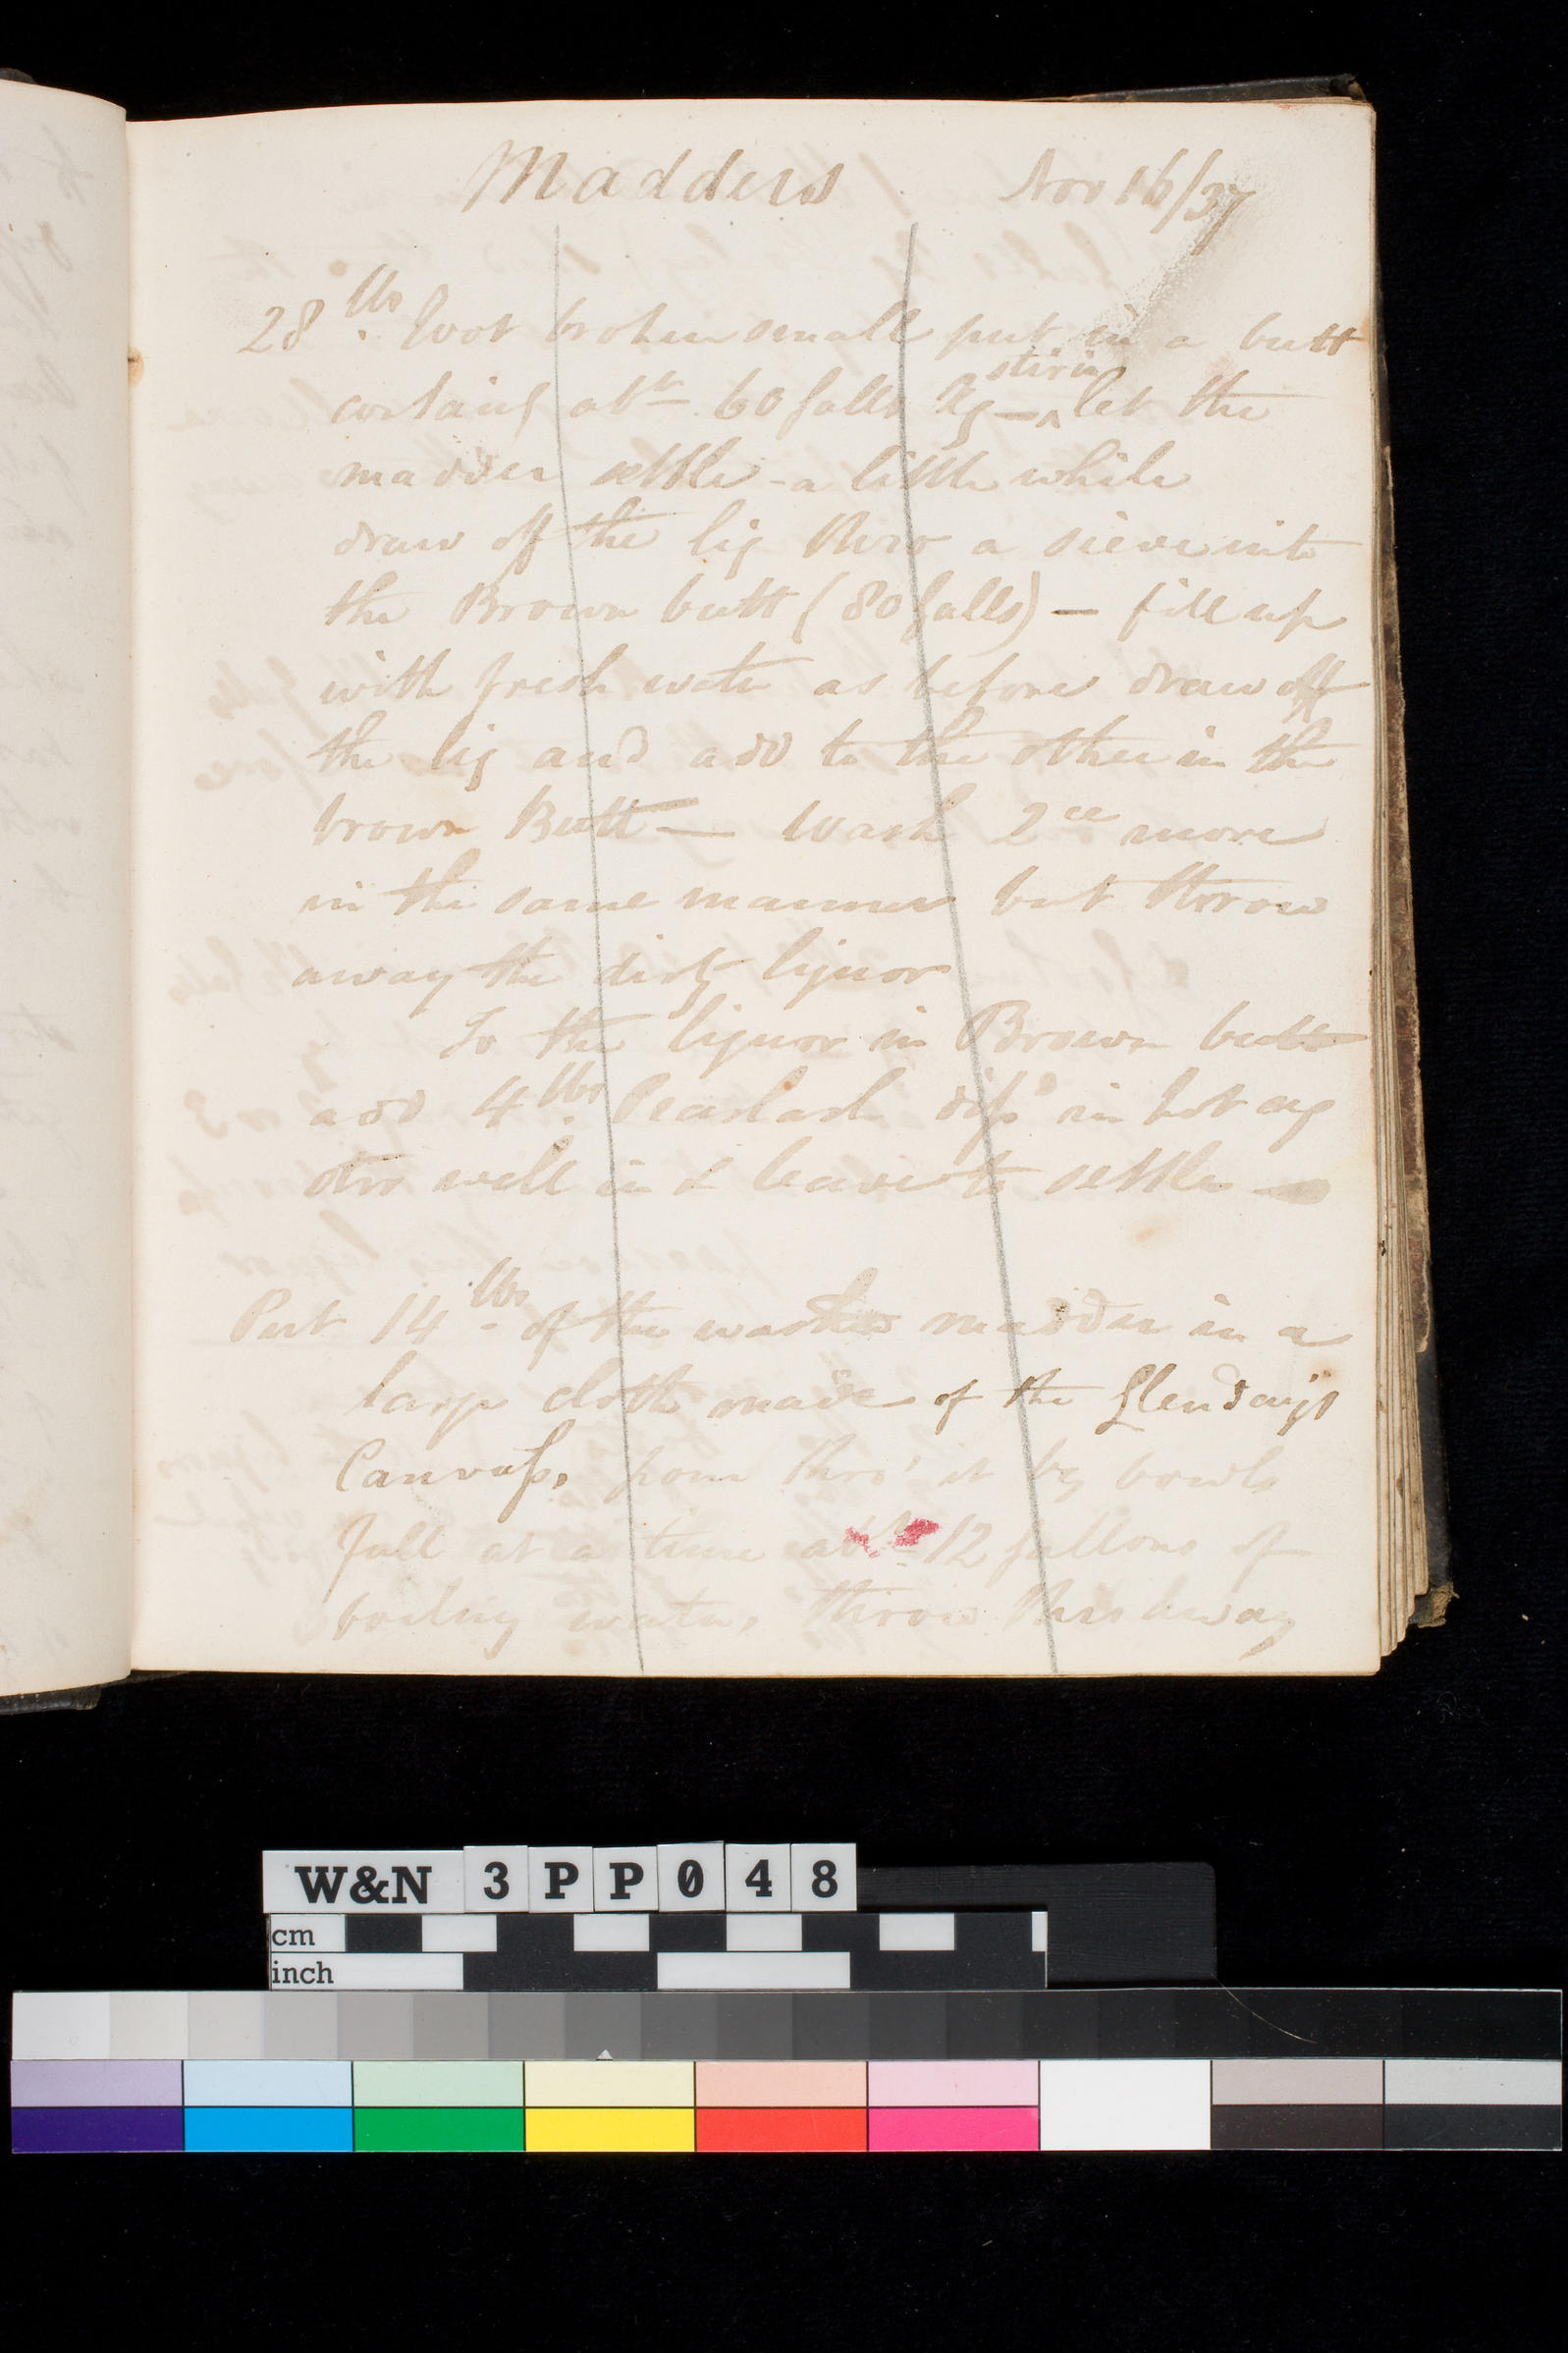 Madders Nov 16/37
28 lbs Root broken small put in a butt
containg abt 60 galls Aq — ^ let the
stirin
madder settle - a little while
draw off the liq thro a sieve into
the Brown butt (80 galls) — fill up
with fresh water as before draw off
the liq and add to the other in the
brown Butt — Wash 2ce more
in the same manner but throw
away the dirty liquor
To the liquor in Brown butt
add 4 lbs Pearlash diſsd in hot aq
stir well in & leave to settle —
Put 14 lbs of the washed madder in a
large cloth made of the
Canvaſs, pour thro' it by bowls
full at a time abt 12 gallons of
boiling water, throw this away
W&N 3PP048
cm
inch